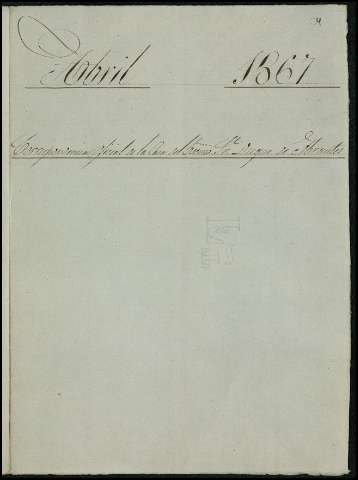 Abril 1867
Correspondencia oficial de la Casa del Excmo. Sr. Duque de Abrantes